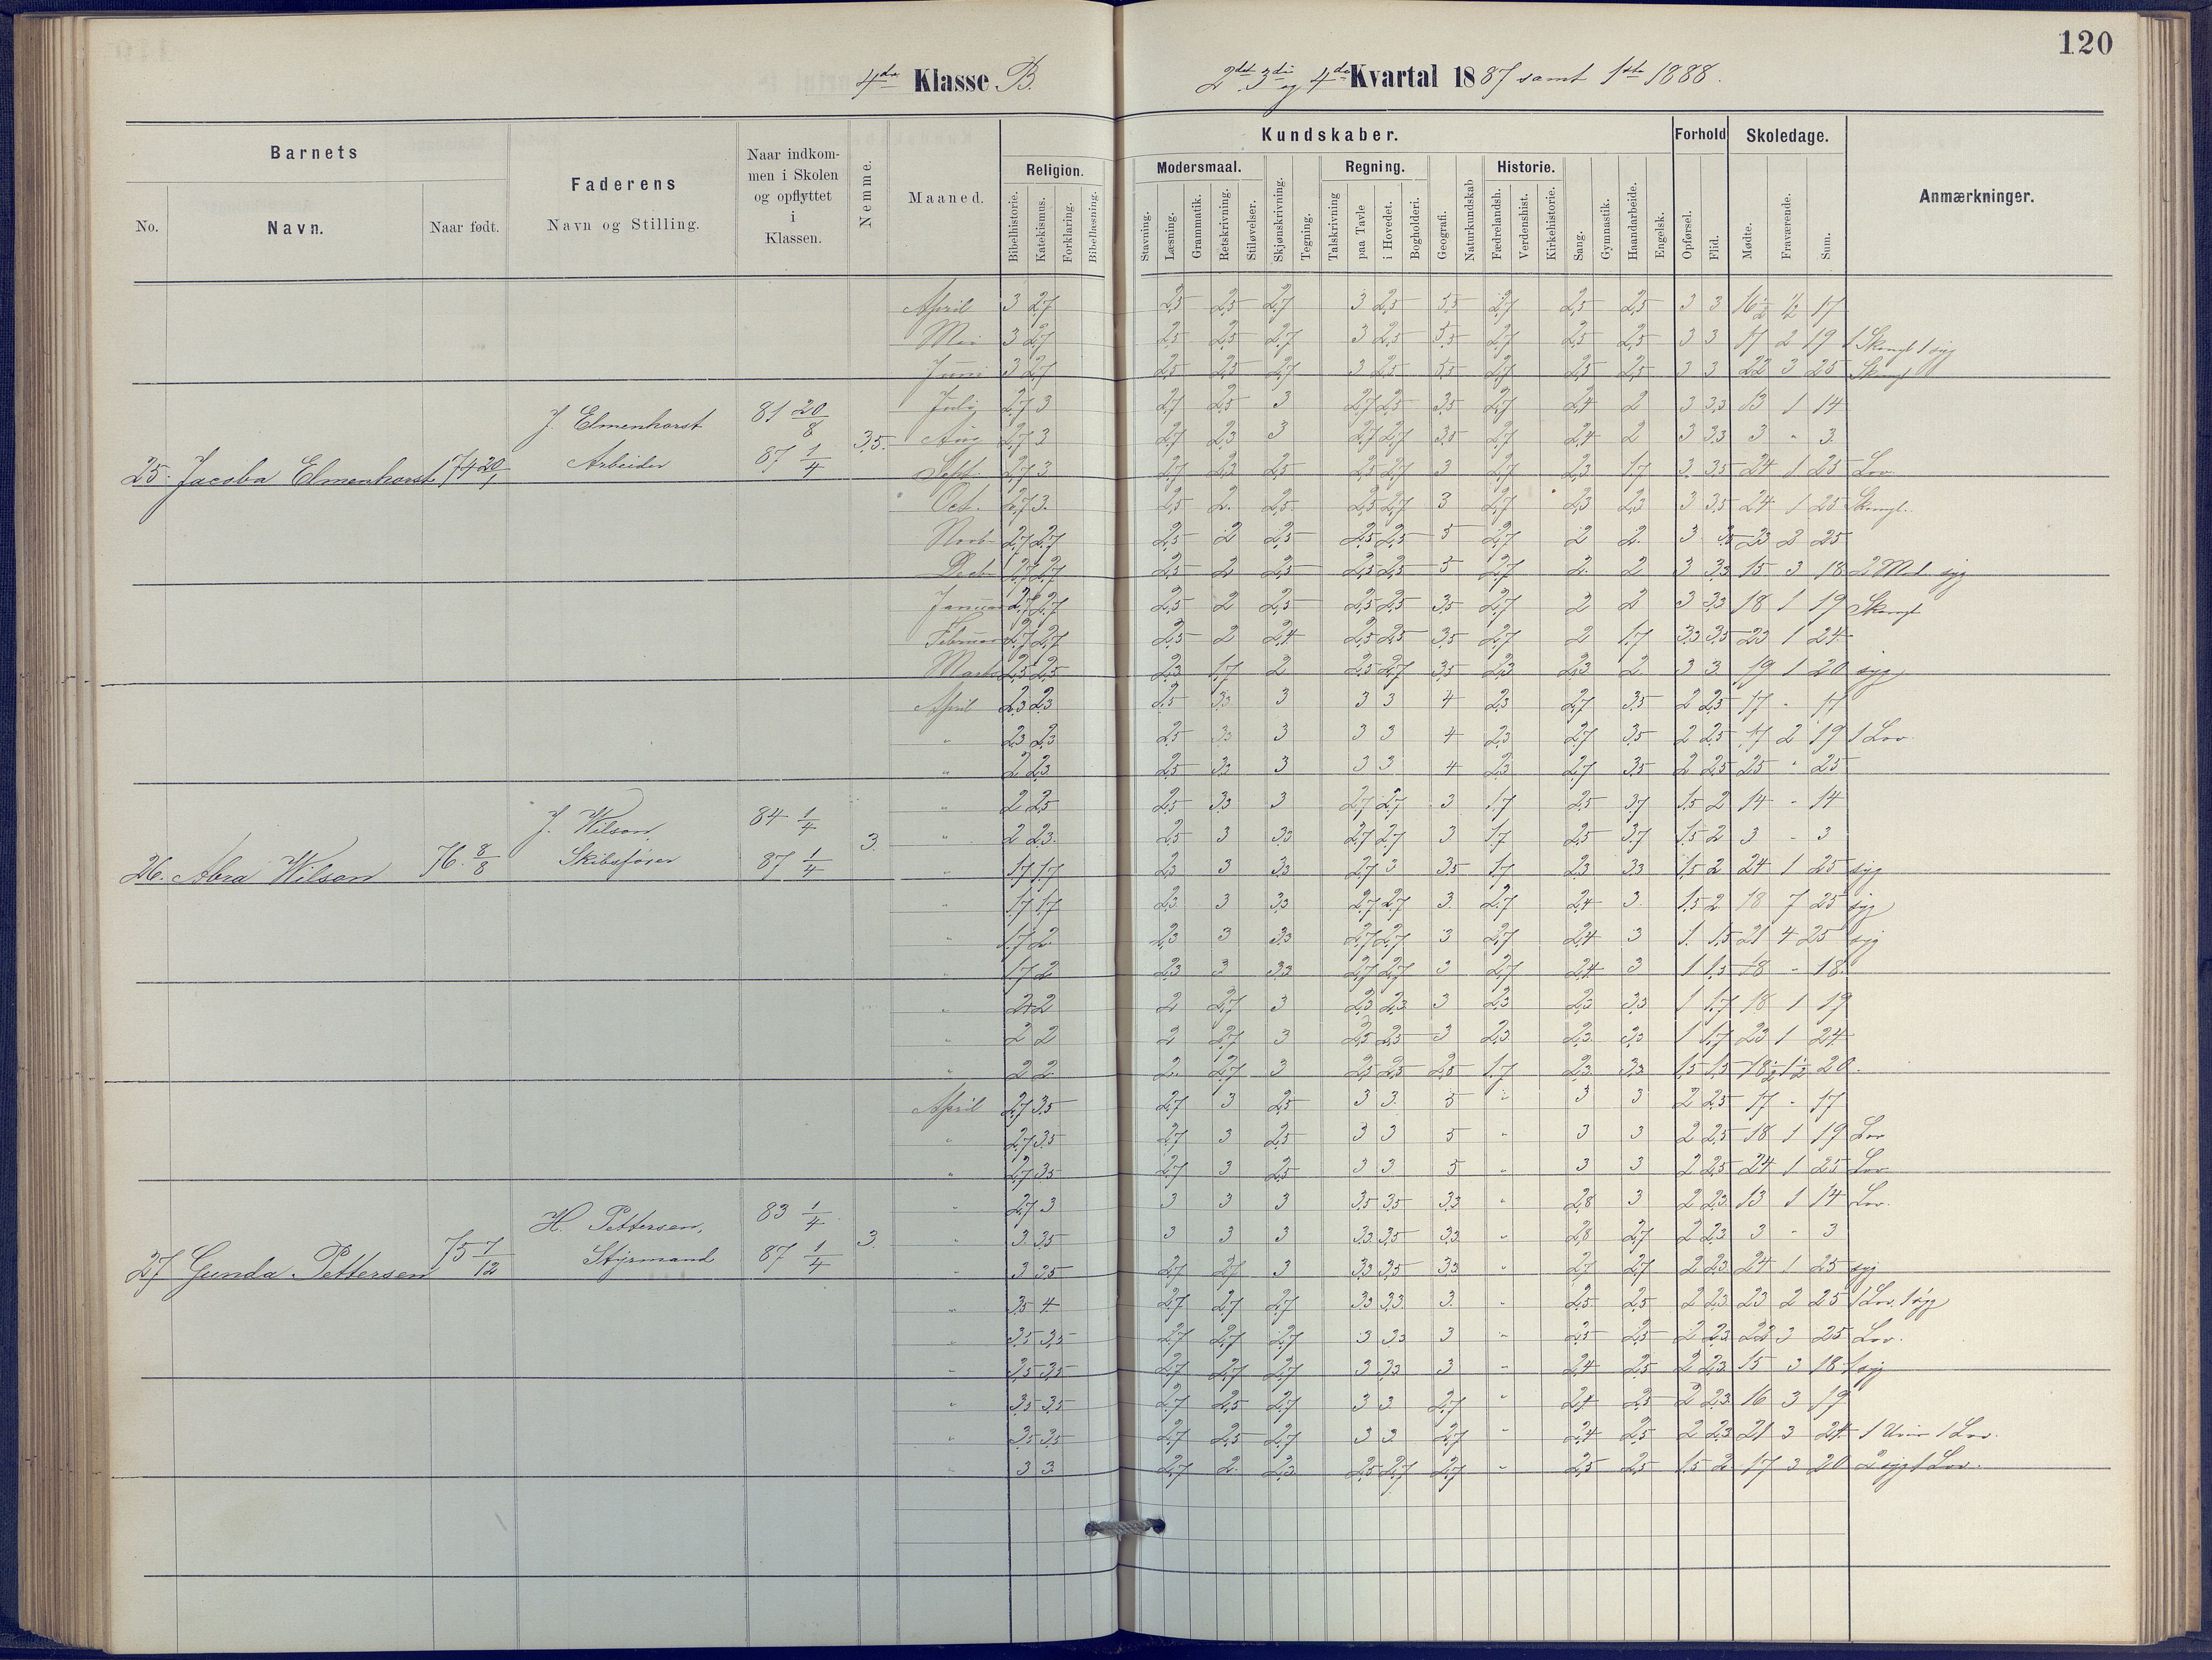 120
4de Klasse B. 2det 3di og 4de Kvartal 1887 samt 1ste 1888.
Barnets
Faderens
Navn og Stilling.
Naar indkom-
men i Skolen
og opflyttet
i
Klassen.
Nemme.
Maaned.
Kundskaber.
Forhold
Skoledage.
Anmærkninger.
No.
Navn.
Naar født.
Religion.
Modersmaal.
Regning.
Historie.
Bibelhistorie.
Katekismus.
Forklaring.
Bibellæsning.
Stavning.
Læsning.
Grammatik.
Retskrivning.
Stiløvelser.
Skjønskrivning.
Tegning.
Talskrivning
paa Tavle
i Hovedet.
Bogholderi.
Geografi.
Naturkundskab
Fædrelandsh.
Verdenshist.
Kirkehistorie.
Sang.
Gymnastik.
Haandarbeide.
Engelsk.
Opførsel.
Flid.
Mødte.
Fraværende.
Sum.
25. Jacoba Elmenhorst 74 20/1 J. Elmenhorst Arbeider 81 20/8 87 1/4 3,5
April 3 2,7 2,5 2,5 2,7 3 2,5 3,5 2,7 2,5 2,5 3 3 16 1/2 1/2 17
Mai 3 2,7 2,5 2,5 2,7 3 2,5 3,5 2,7 2,5 2,5 3 3 17 2 19 1 Skongl 1 syg
Juni 3 2,7 2,5 2,5 2,7 3 2,5 3,5 2,7 2,5 2,5 3 3 22 3 25 Skongl
July 2,7 3 2,7 2,5 3 2,7 2,5 3,5 2,7 2,4 2 3 3,3 13 1 14
Aug 2,7 3 2,7 2,3 3 2,7 2,7 3,5 2,7 2,4 2 3 3,3 3 - 3
Sept. 2,7 3 2,7 2,3 2,5 2,5 2,7 3 2,7 2,3 1,7 3 3,5 24 1 25 Lov.
Oct. 2,7 3 2,5 2 2,5 2,5 2,7 3 2,7 2,3 2,3 3 3,5 24 1 25 Skongl.
Novb 2,7 2,7 2,5 2 2,5 2,5 2,5 3 2,7 2 2 3 3,5 23 2 25
Decb 2,7 2,7 2,5 2 2,5 2,5 2,5 3 2,7 2 2 3 3,3 15 3 18 2 Mod. syg
Januar 2,7 2,7 2,5 2 2,5 2,5 2,5 3,5 2,7 2 2 3 3,3 18 1 19 Skongl
Februar 2,7 2,7 2,5 2 2,4 2,5 2,5 3,5 2,7 2 1,7 3,3 3,5 23 1 24
Marts 2,5 2,5 2,3 1,7 2 2,5 2,7 3,5 2,3 2,3 2 3 3 19 1 20 syg
26. Abra Wilson 76 8/8 J. Wilson Skibsfører 84 1/4 87 1/4 3.
April 2,3 2,3 2,5 3,3 3 3 3 4 2,3 2,7 3,5 2 2,5 17 - 17
" 2,3 2,3 2,5 3,3 3 3 3 4 2,3 2,7 3,5 2 2,5 17 2 19 1 Lov.
" 2 2,3 2,5 3,3 3 3 3 4 2,3 2,7 3,5 2 2,5 25 - 25
" 2 2,5 2,5 3,3 3 2,7 2,7 3 1,7 2,5 3,7 1,5 2 14 - 14
" 2 2,3 2,5 3 3,3 2,7 2,7 3 1,7 2,5 3,7 1,5 2 3 - 3
" 1,7 1,7 2,3 3 3,3 2,7 3 3,5 1,7 2,3 3,3 1,5 2 24 1 25 syg
" 1,7 1,7 2,3 3 3,3 2,7 2,7 3 2,7 2,4 3 1,5 2 18 7 25 syg
" 1,7 2 2,3 3 3,3 2,7 2,7 3 2,7 2,4 3 1 1,5 21 4 25 syg
" 1,7 2 2,3 3 3,3 2,7 2,7 3 2,7 2,4 3 1 1,5 18 - 18
" 2 2 2 2,7 3 2,3 2,3 3 2,3 2,3 3,3 1 1,7 18 1 19
" 2 2 2 2,7 3 2,5 2,5 3 2,3 2,3 3,3 1 1,7 23 1 24
" 2 2 2 2,7 3 2,5 2,5 2,8 1,7 2,3 3,3 1,5 1,5 18 1/2 1 1/2 20
27 Gunda Pettersen 75 7/12 H. Pettersen, Styrmand 83 1/4 87 1/4 3.
April 2,7 3,5 2,7 3 2,5 3 3 5 " 3 3 2 2,5 17 - 17
" 2,7 3,5 2,7 3 2,5 3 3 5 " 3 3 2 2,5 18 1 19 Lov
" 2,7 3,5 2,7 3 2,5 3 3 5 " 3 3 2 2,5 24 1 25 Lov
" 2,7 3 3 3 3 3,5 3,5 3,3 " 2,8 3 2 2,3 13 1 14 Lov.
" 3 3,5 3 3 3 3,3 3,5 3,3 " 2,8 2,7 2 2,3 3 - 3
" 3 3,5 2,7 2,7 3 3,3 3,5 3,3 " 2,7 2,7 2 2,3 24 1 25 syg
" 3,5 4 2,7 2,7 2,7 3,3 3,3 3 " 2,5 2,5 2 2,3 23 2 25 1 Lov. 1 syg
" 3,5 3,5 2,7 2,7 2,7 3 3,3 3 " 2,5 2,5 2 2,3 22 3 25 Lov.
" 3,5 3,5 2,7 2,7 2,7 3 3,3 3 " 2,4 2,5 2 2,3 15 3 18 1 syg
" 3,5 3,5 2,7 2,5 2,7 3 3 2,7 " 2,4 2,5 2 2,3 16 3 19
" 3,5 3,5 2,7 2,5 2,7 3 3 2,7 " 2,4 2,5 2 2,3 21 3 24 1 Lov.
" 3 3 2,7 2 2,3 2,5 2,7 2,7 " 2,5 2,5 1,5 2 17 3 20 2 syg 1 Lov.